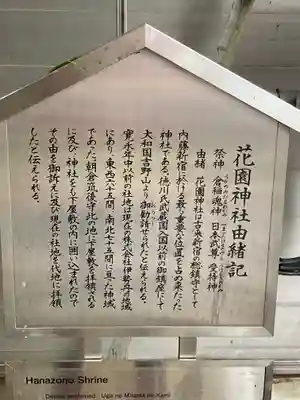 花園神社由緒記
祭神 倉稲魂神 日本武尊 受持神
由緒 花園神社は古来新宿の総鎮守として
内藤新宿に於ける最も重要な位置を占め来たった
神社である。徳川氏武蔵国入国以前の御鎮座にして
大和国吉野山より御勧請せられたと伝えられる。
寛永年中以前の社地は現在の株式会社伊勢丹の地域
にあり、東西六十五間、南北七十五間に亘った神域
であった。朝倉筑後守此の地に下屋敷を拝領される
に及び、神社をも下屋敷の内に囲い込まれたので
その由を御訴えに及び現在の社地を代地に拝領
したと伝えられる。
Hanazono Shrine
Deities enshrined: Uga no Mitama no Kami